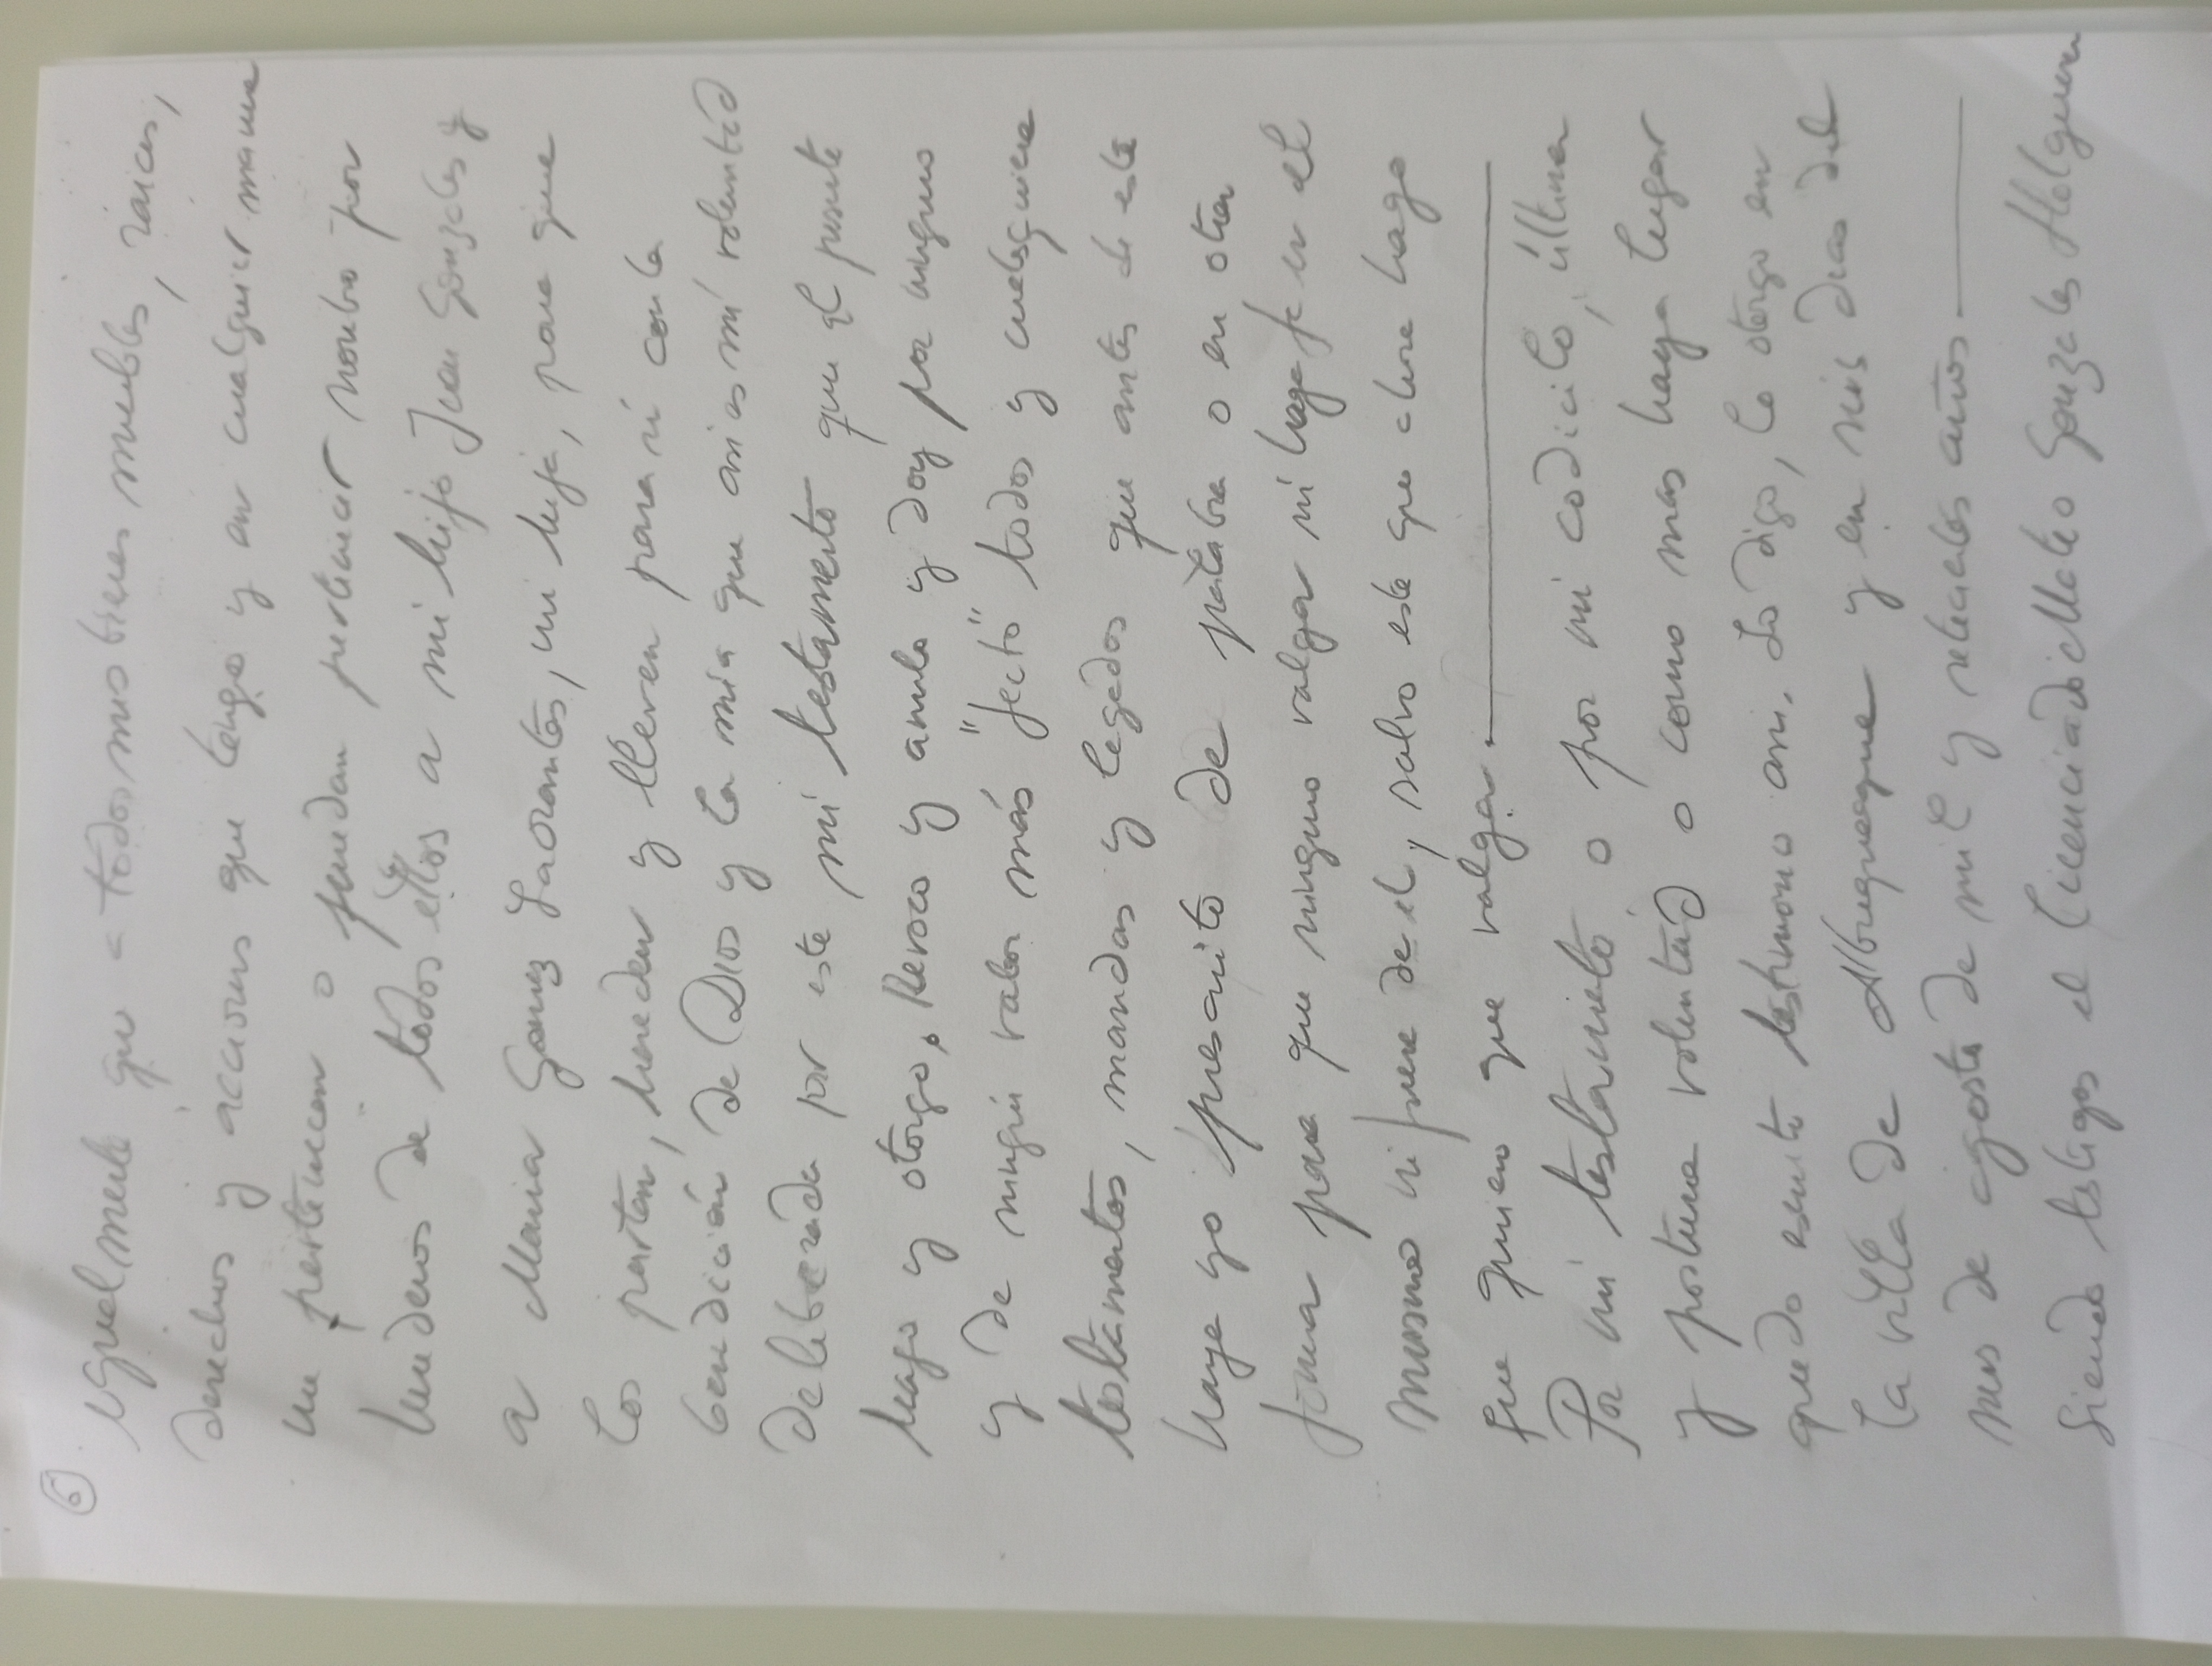 6
igualmente que a todos mis bienes muebles, raices,
derechos y acciones que tengo y en cualquier manera
me pertenecen o puedan pertenecer nonbro por
herederos de todos ellos a mi hijo Juan Gonzales y
a Maria Gomez Ladrantes, mi hija, para que
los partan, hereden y lleven para sí con la
bendición de Dios y la mia que asi es mí voluntad
deliberada por este mi testamento que al presente
hago y otorgo. Revoco y anulo y doy por ninguno
y de ningún valor más "fecto" todos y cualesquiera
testamentos, mandas y legados que antes de este
haya yo prescrito de palabra o en otra
forma para que ninguno valga ni haga fe en el
mismo ni fuera de el, salvo este que ahora hago
que quiero que valga.
Por mi testamento o por mi codicilo, última
y postrera voluntad o como mas haya lugar
quedo escrito testimonio asi. Lo digo, lo otorgo en
la villa de Alburquerque y en seis dias del
mes de agosto de mil y setecientos años
Siendo testigos el licenciado Mateo Gonzales Holguera